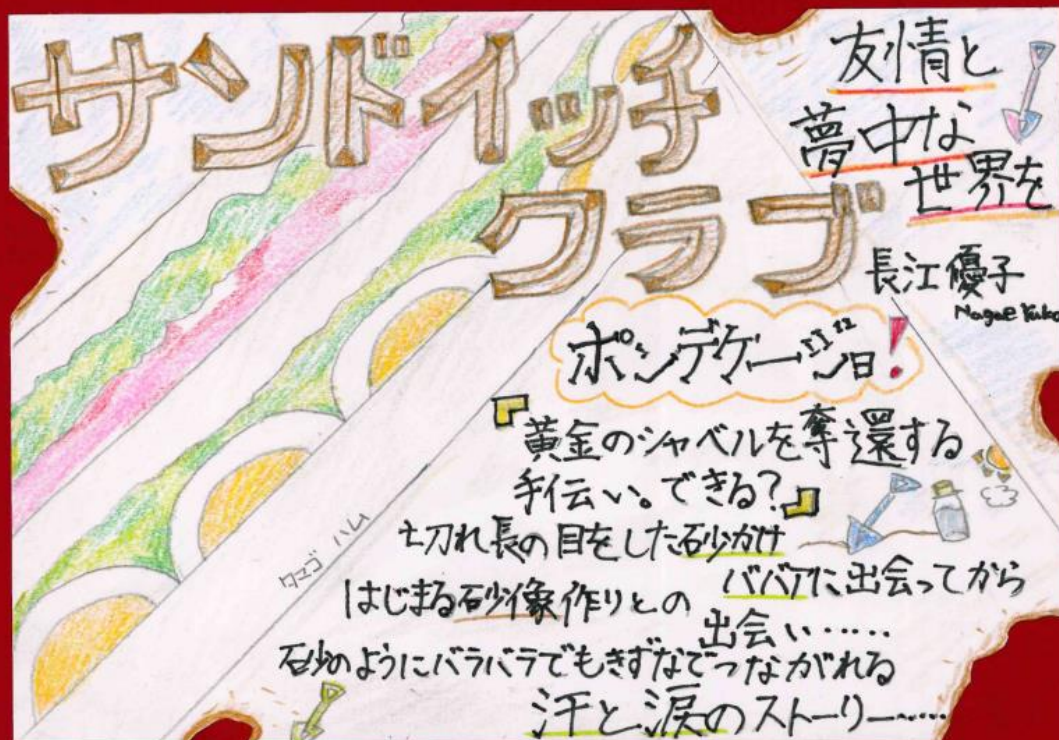 サンドイッチ
クラブ
友情と
夢中な
世界を
長江優子
Nagae Yuko
ポンデケージョ!
『黄金のシャベルを奪還する
手伝い。できる?』
切れ長の目をした砂かけ
ババアに出会ってから
はじまる砂像作りとの
出会い……
砂のようにバラバラでもきずなでつながれる
汗と涙のストーリー……
タマゴ ハム